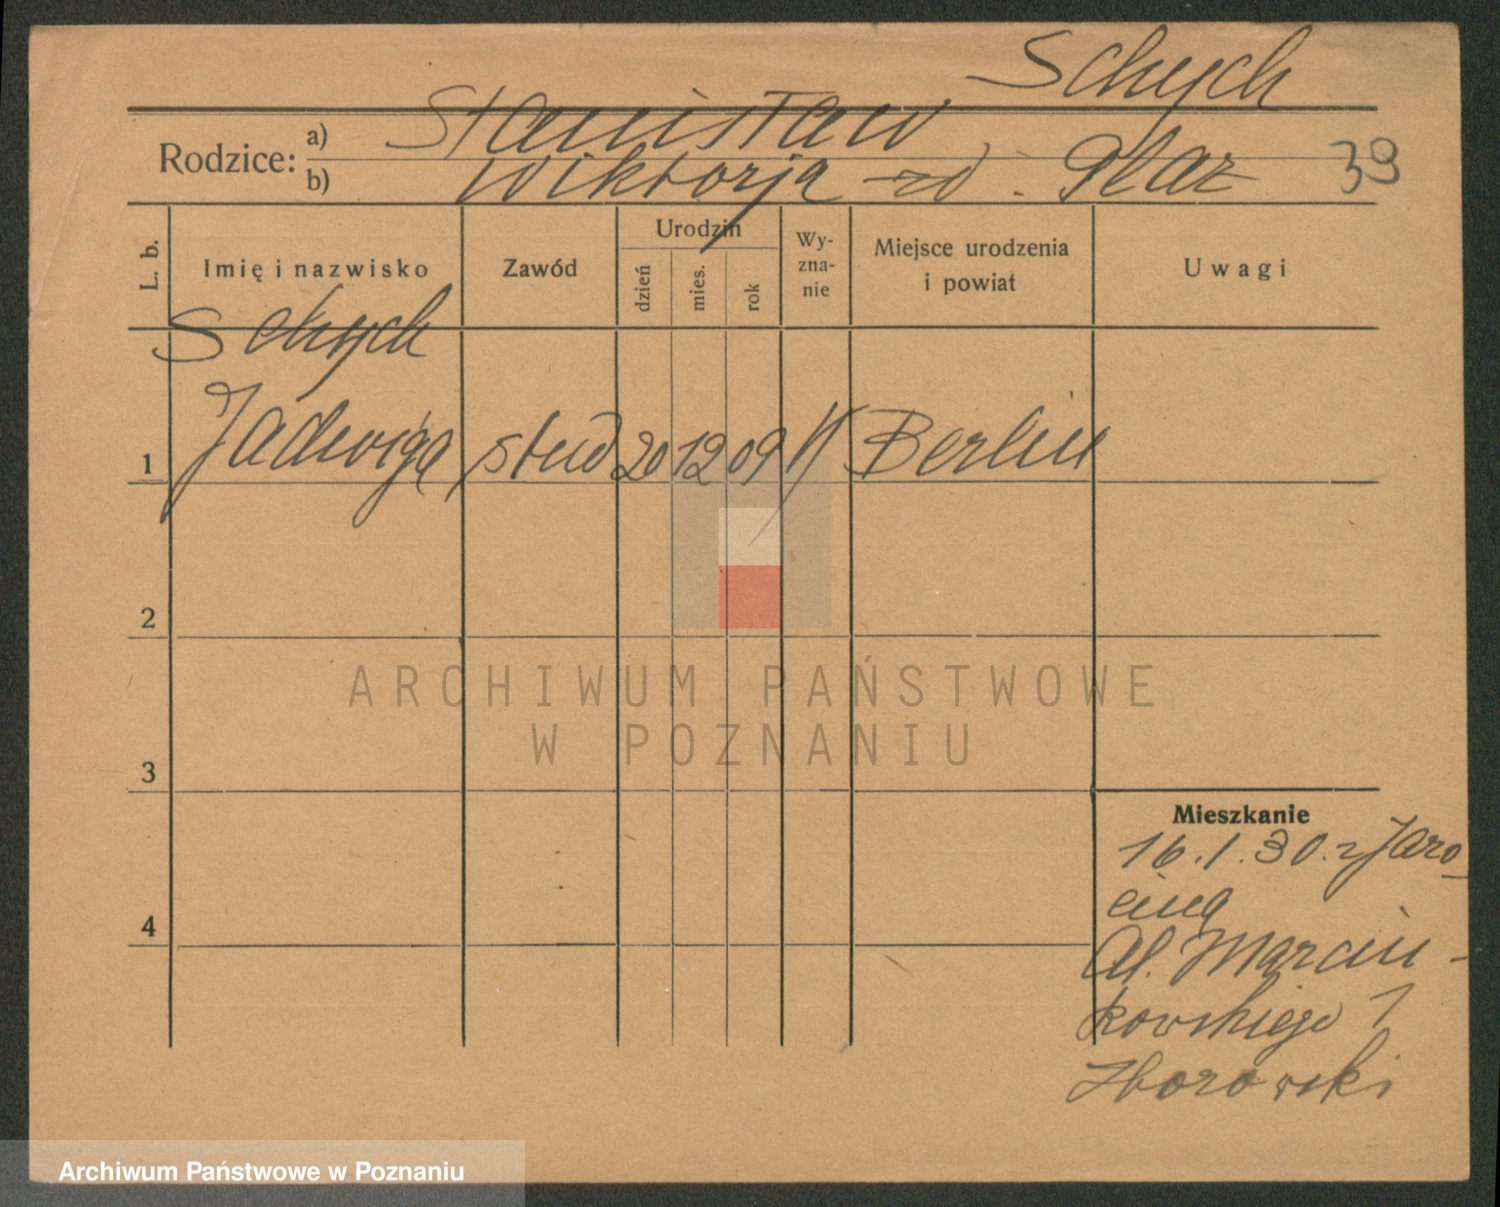 Schych
Rodzice: a) Stanisław
b) Wiktorja zd. Płaz 39
L. b. Imię i nazwisko Zawód Urodzin dzień mies. rok Wy-zna-nie Miejsce urodzenia i powiat Uwagi
Schych
1 Jadwiga stud 20 12 09 Berlin
2
ARCHIWUM PAŃSTWOWE
W POZNANIU
3
Mieszkanie
16.1.30. z Jaro-
cina
4
Al. Marcin-
kowskiego 1
Zborowski
Archiwum Państwowe w Poznaniu